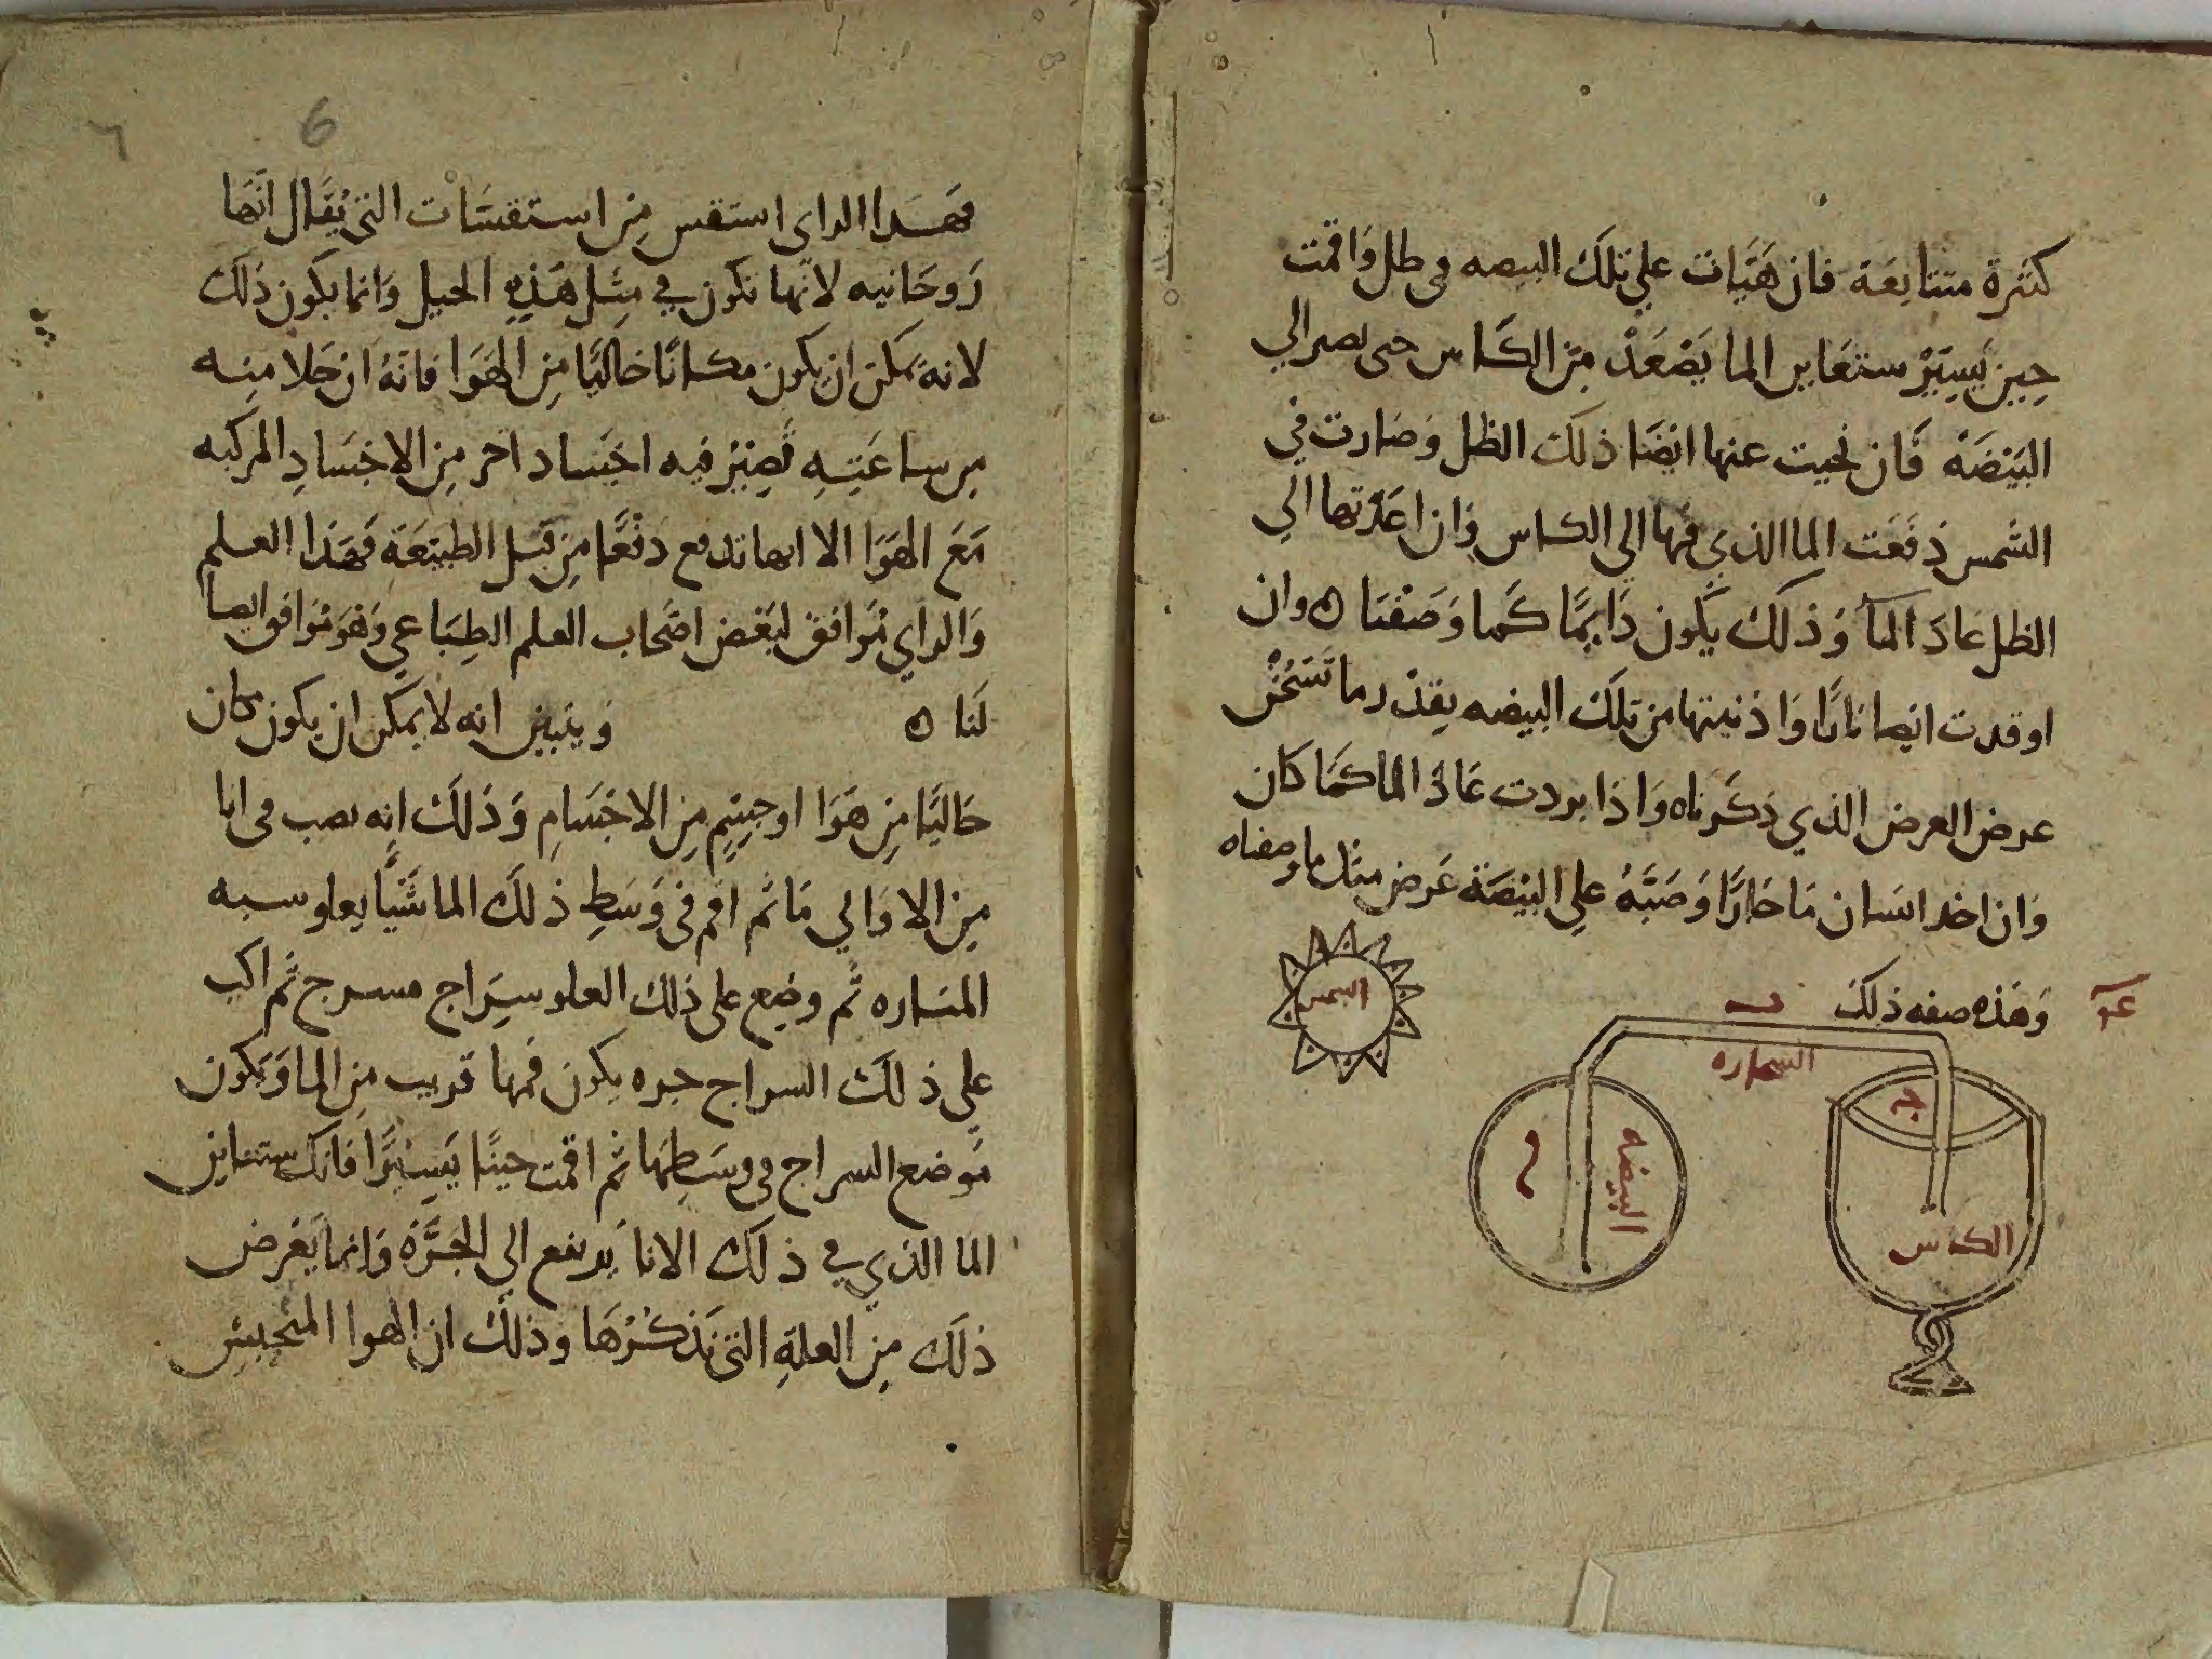 كثيرة متتابعة فان هيات على تلك البيضه في ظل واقمت
حين يسير ستعاين الما يصعد من الكاس حتى يصير الي
البيضة فان نحيت عنها ايضا ذلك الظل وصارت في
الشمس دفعت الما الذي فيها الى الكاس وان اعدتها الي
الظل عاد الما وذلك يكون دايما كما وصفنا ه وان
اوقدت ايضا نارا واذنيتها من تلك البيضه بقدر ما تسخن
عرض العرض الذي ذكرناه واذا بردت عاد الما كما كان
وان اخد انسان ما حارا وصبه على البيضة عرض مثل ما وصفناه
وهذه صفه ذلك
الشمس
ب
السحاره
ج
البيضه
الكاس
6
٦
فهدا الراى استقس من استقسات التي يقال انها
روحانيه لانها تكون في مثل هذه الحيل وانما يكون ذلك
لانه يمكن ان يكون مكانا خاليا من الهوا فانه ان خلا منه
من ساعته تصير فيه اجساد اخر من الاجساد المركبه
مع الهوا الا انها تدفع دفعا من قبل الطبيعة فهذا العلم
والراي موافق لبعض اصحاب العلم الطباعي وهو موافق ايضا
لنا ه ويتبين انه لا يمكن ان يكون مكان
خاليا من هوا او جسم من الاجسام وذلك انه يصب في انا
من الاواني ما ثم اقم في وسط ذلك الما شيا يعلو شبه
المناره ثم وضع على ذلك العلو سراج مسرج ثم اكب
على ذلك السراج جره يكون فمها قريب من الما ويكون
موضع السراج في وسطها ثم اقمت حينا يسيرا فانك ستعاين
الما الذي في ذلك الانا يرتفع الي الجرة وانما يعرض
ذلك من العلة التي نذكرها وذلك ان الهوا المحتبس